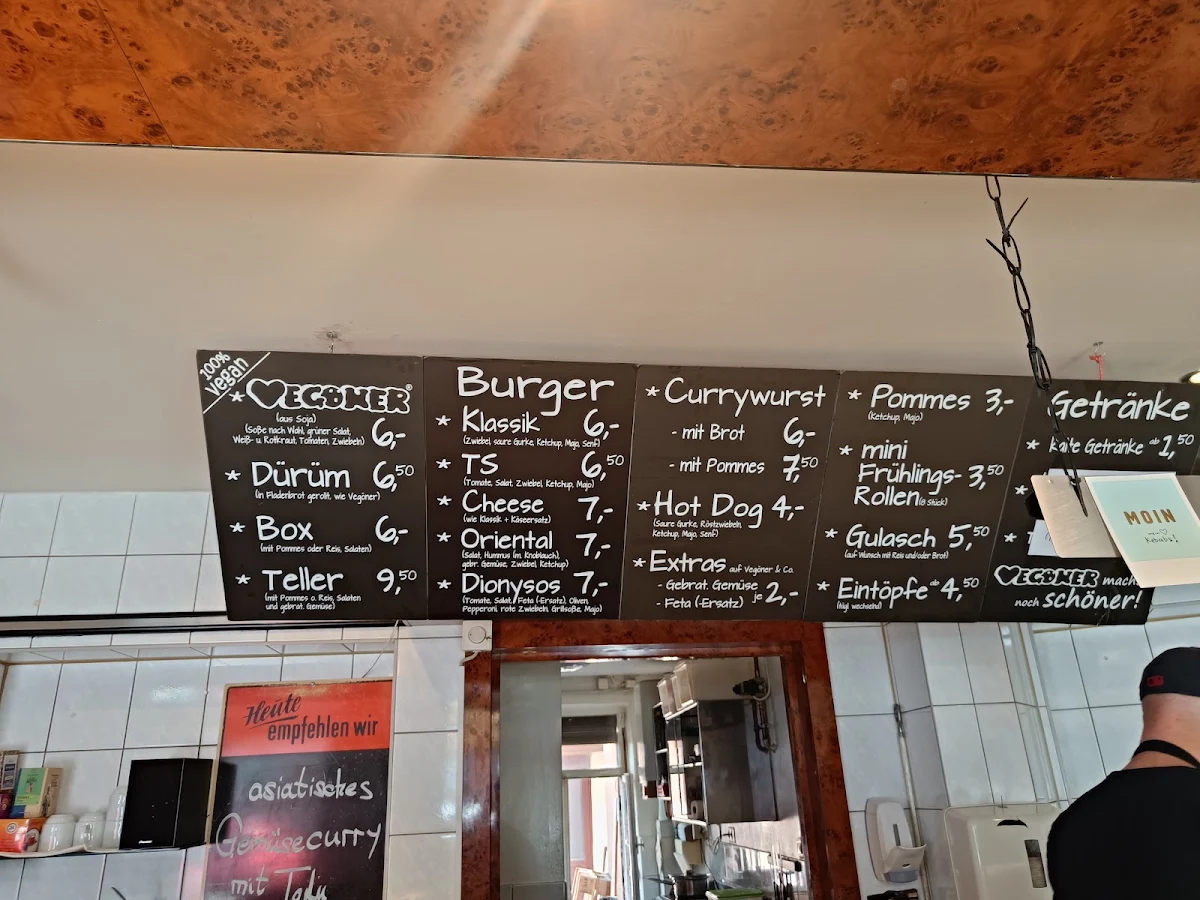 100%
vegan
* VEGÖNER®
(aus Soja)
(Soße nach Wahl, grüner Salat,
Weiß- u. Rotkraut, Tomaten, Zwiebeln) 6,-
* Dürüm 6,50
(in Fladenbrot gerollt, wie Vegöner)
* Box 6,-
(mit Pommes oder Reis, Salaten)
* Teller 9,50
(mit Pommes o. Reis, Salaten
und gebrat. Gemüse)
Burger
* Klassik 6,-
(Zwiebel, saure Gurke, Ketchup, Majo, Senf)
* TS 6,50
(Tomate, Salat, Zwiebel, Ketchup, Majo)
* Cheese 7,-
(wie Klassik + Käseersatz)
* Oriental 7,-
(Salat, Hummus (m. Knoblauch),
gebr. Gemüse, Zwiebel, Ketchup)
* Dionysos 7,-
(Tomate, Salat, Feta (-Ersatz), Oliven,
Pepperoni, rote Zwiebeln, Grillsoße, Majo)
* Currywurst
- mit Brot 6,-
- mit Pommes 7,50
* Hot Dog 4,-
(Saure Gurke, Röstzwiebeln,
Ketchup, Majo, Senf)
* Extras auf Vegöner & Co.
- Gebrat. Gemüse
- Feta (-Ersatz) je 2,-
* Pommes 3,-
(Ketchup, Majo)
* mini
Frühlings- 3,50
Rollen (8 Stück)
* Gulasch 5,50
(auf Wunsch mit Reis und/oder Brot)
* Eintöpfe ab 4,50
(tägl. wechselnd)
Getränke
* Kalte Getränke ab 1,50
*
*
VEGÖNER mach
noch schöner!
MOIN
Kebabs!
Heute
empfehlen wir
asiatisches
Gemüsecurry
mit Tofu